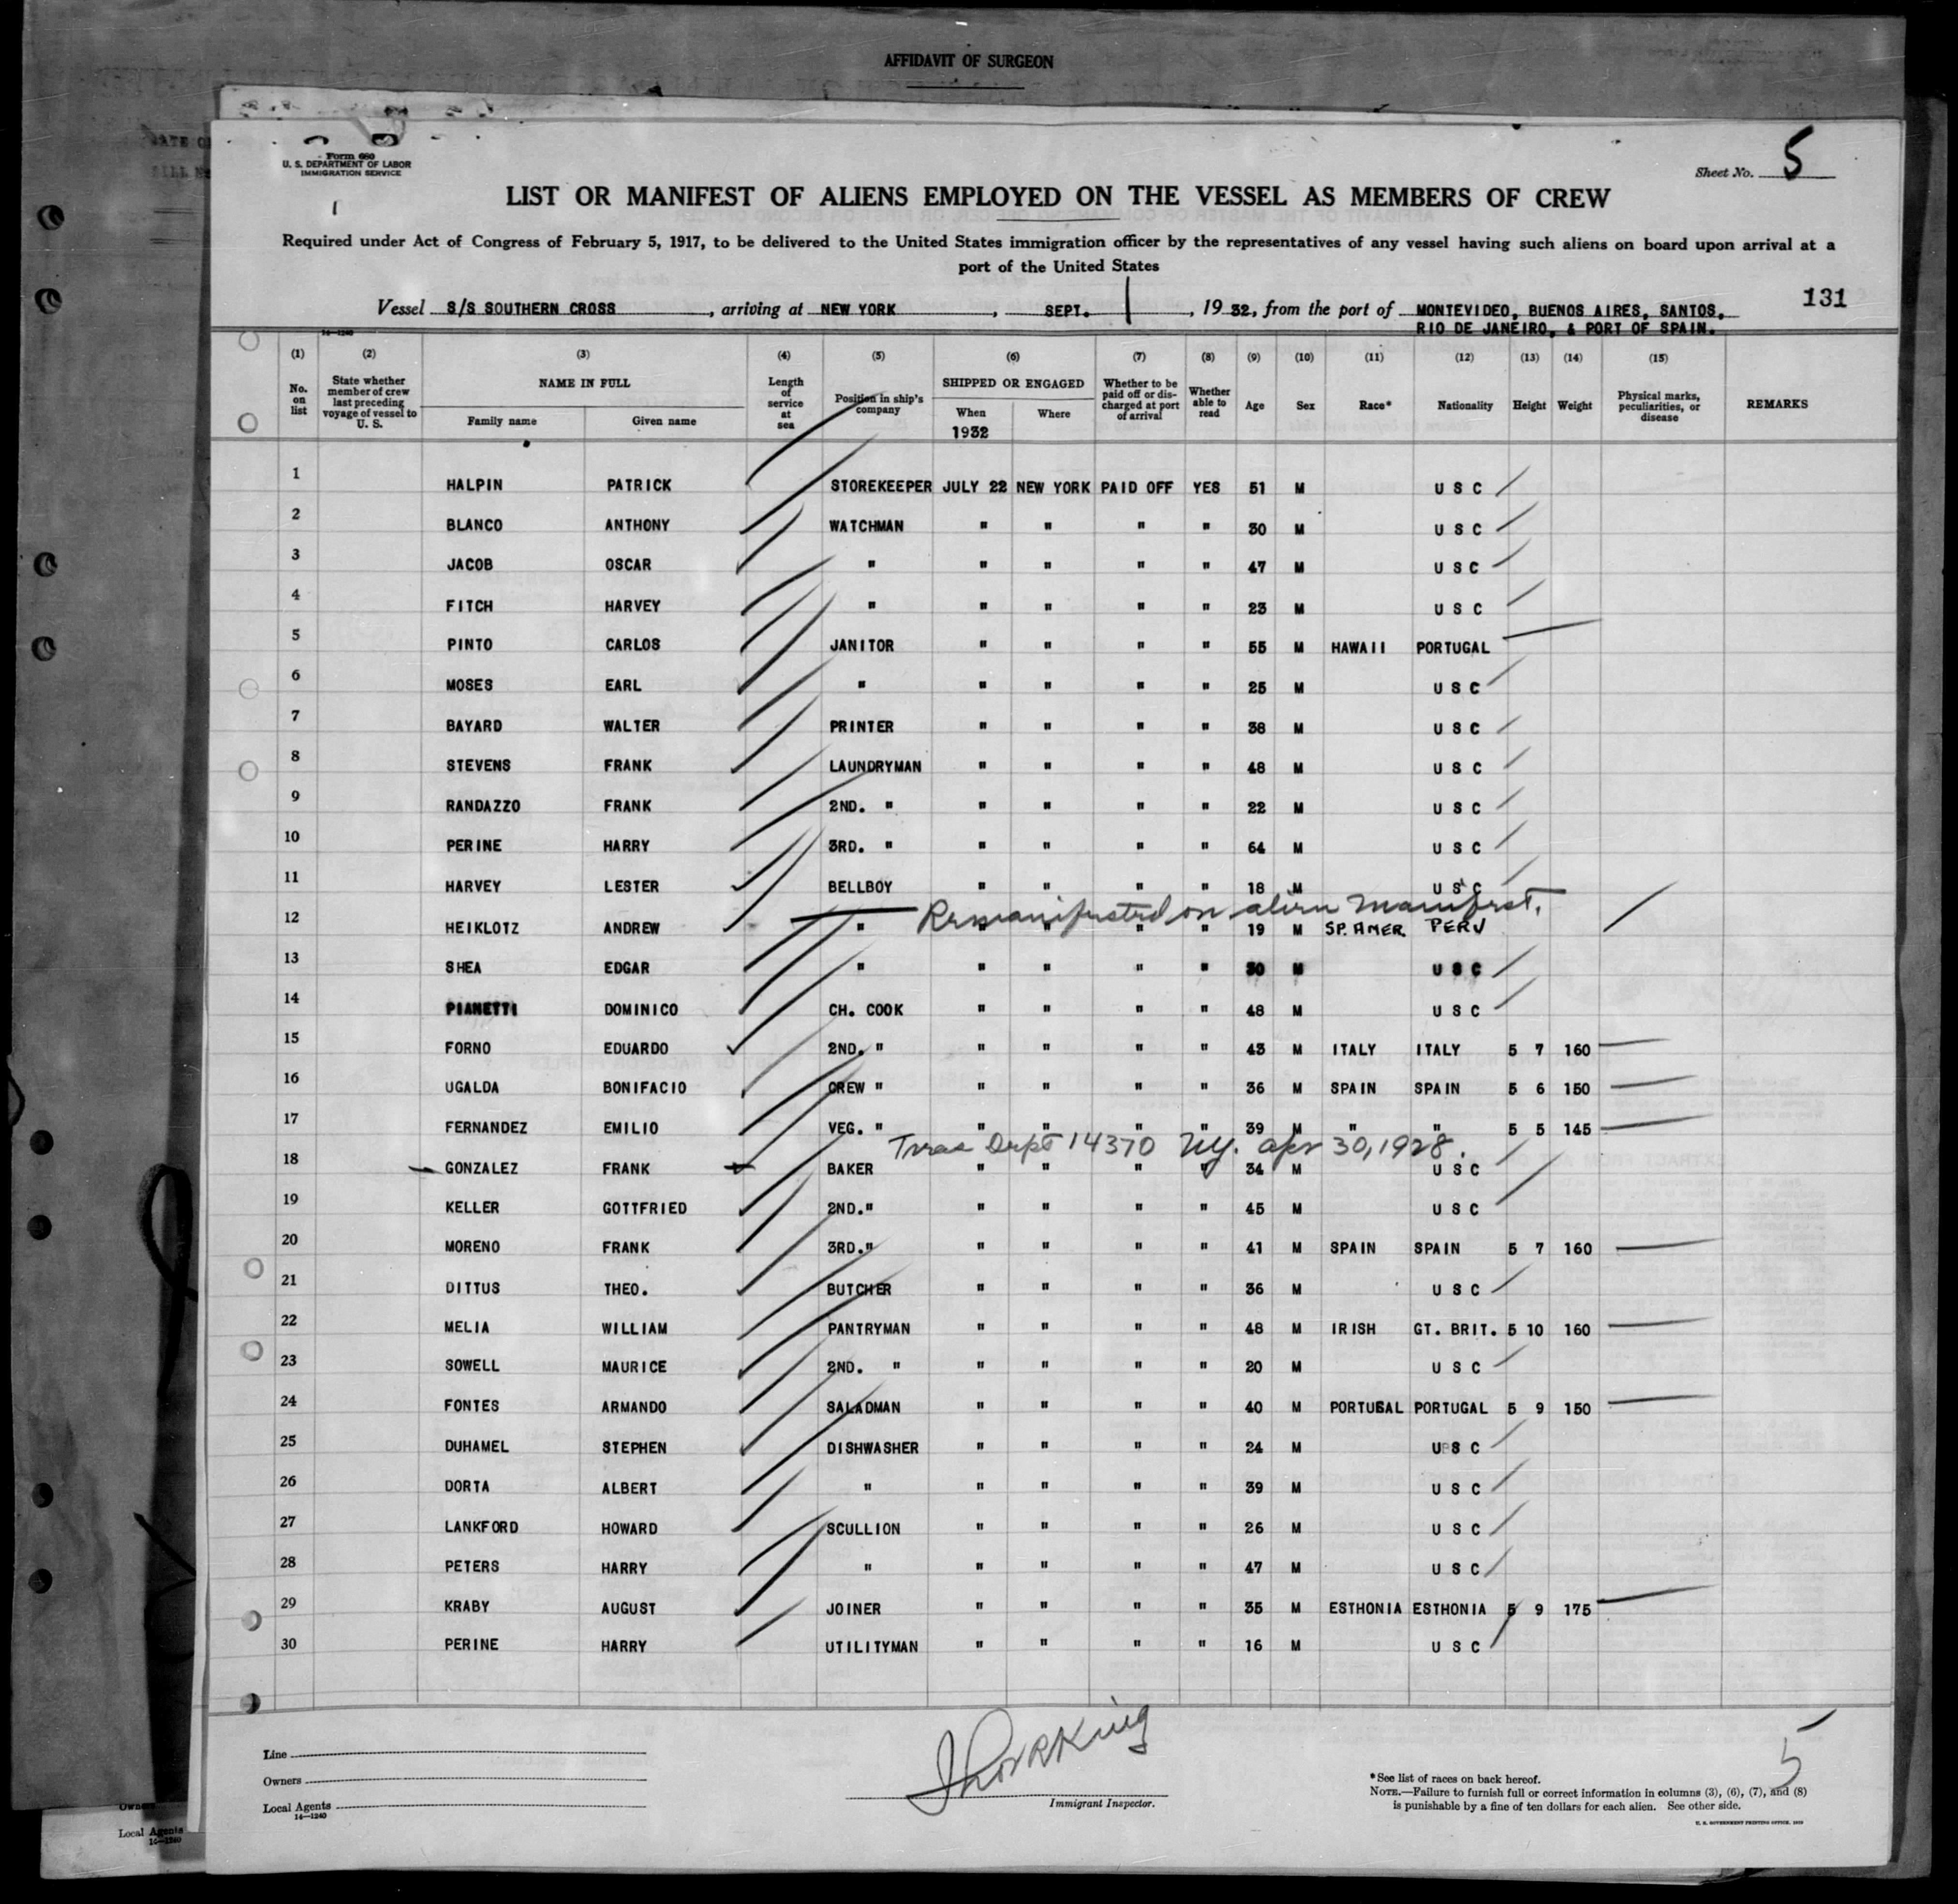 AFFIDAVIT OF SURGEON
Form 680
U. S. DEPARTMENT OF LABOR
IMMIGRATION SERVICE
Sheet No. 5
LIST OR MANIFEST OF ALIENS EMPLOYED ON THE VESSEL AS MEMBERS OF CREW
Required under Act of Congress of February 5, 1917, to be delivered to the United States immigration officer by the representatives of any vessel having such aliens on board upon arrival at a
port of the United States
Vessel S/S SOUTHERN CROSS, arriving at NEW YORK, SEPT. 1, 1932, from the port of MONTEVIDEO, BUENOS AIRES, SANTOS, 131
RIO DE JANEIRO, & PORT OF SPAIN.
14-1240
(1) (2) (3) (4) (5) (6) (7) (8) (9) (10) (11) (12) (13) (14) (15)
No. on list State whether member of crew last preceding voyage of vessel to U. S. NAME IN FULL Family name Given name Length of service at sea Position in ship's company SHIPPED OR ENGAGED When 1932 Where Whether to be paid off or discharged at port of arrival Whether able to read Age Sex Race* Nationality Height Weight Physical marks, peculiarities, or disease REMARKS
1 HALPIN PATRICK STOREKEEPER JULY 22 NEW YORK PAID OFF YES 51 M U S C
2 BLANCO ANTHONY WATCHMAN " " " " 30 M U S C
3 JACOB OSCAR " " " " " 47 M U S C
4 FITCH HARVEY " " " " " 23 M U S C
5 PINTO CARLOS JANITOR " " " " 55 M HAWAII PORTUGAL
6 MOSES EARL " " " " " 25 M U S C
7 BAYARD WALTER PRINTER " " " " 38 M U S C
8 STEVENS FRANK LAUNDRYMAN " " " " 48 M U S C
9 RANDAZZO FRANK 2ND. " " " " " 22 M U S C
10 PERINE HARRY 3RD. " " " " " 64 M U S C
11 HARVEY LESTER BELLBOY " " " " 18 M U S C
Remanifested on alien manifest.
12 HEIKLOTZ ANDREW " " " " " 19 M SP. AMER PERU
13 SHEA EDGAR " " " " " 30 M U S C
14 PIANETTI DOMINICO CH. COOK " " " " 48 M U S C
15 FORNO EDUARDO 2ND. " " " " " 43 M ITALY ITALY 5 7 160
16 UGALDA BONIFACIO CREW " " " " " 36 M SPAIN SPAIN 5 6 150
17 FERNANDEZ EMILIO VEG. " " " " " 39 M " " 5 5 145
Dept 14370 NY. Apr 30, 1928.
18 GONZALEZ FRANK BAKER " " " " 34 M U S C
19 KELLER GOTTFRIED 2ND. " " " " " 45 M U S C
20 MORENO FRANK 3RD. " " " " " 41 M SPAIN SPAIN 5 7 160
21 DITTUS THEO. BUTCHER " " " " 36 M U S C
22 MELIA WILLIAM PANTRYMAN " " " " 48 M IRISH GT. BRIT. 5 10 160
23 SOWELL MAURICE 2ND. " " " " " 20 M U S C
24 FONTES ARMANDO SALADMAN " " " " 40 M PORTUGAL PORTUGAL 5 9 150
25 DUHAMEL STEPHEN DISHWASHER " " " " 24 M U S C
26 DORTA ALBERT " " " " " 39 M U S C
27 LANKFORD HOWARD SCULLION " " " " 26 M U S C
28 PETERS HARRY " " " " " 47 M U S C
29 KRABY AUGUST JOINER " " " " 35 M ESTHONIA ESTHONIA 5 9 175
30 PERINE HARRY UTILITYMAN " " " " 16 M U S C
Line
Owners
Local Agents
14-1240
Immigrant Inspector.
5
*See list of races on back hereof.
NOTE.—Failure to furnish full or correct information in columns (3), (6), (7), and (8)
is punishable by a fine of ten dollars for each alien. See other side.
U. S. GOVERNMENT PRINTING OFFICE
Owners
Local Agents
14-1240